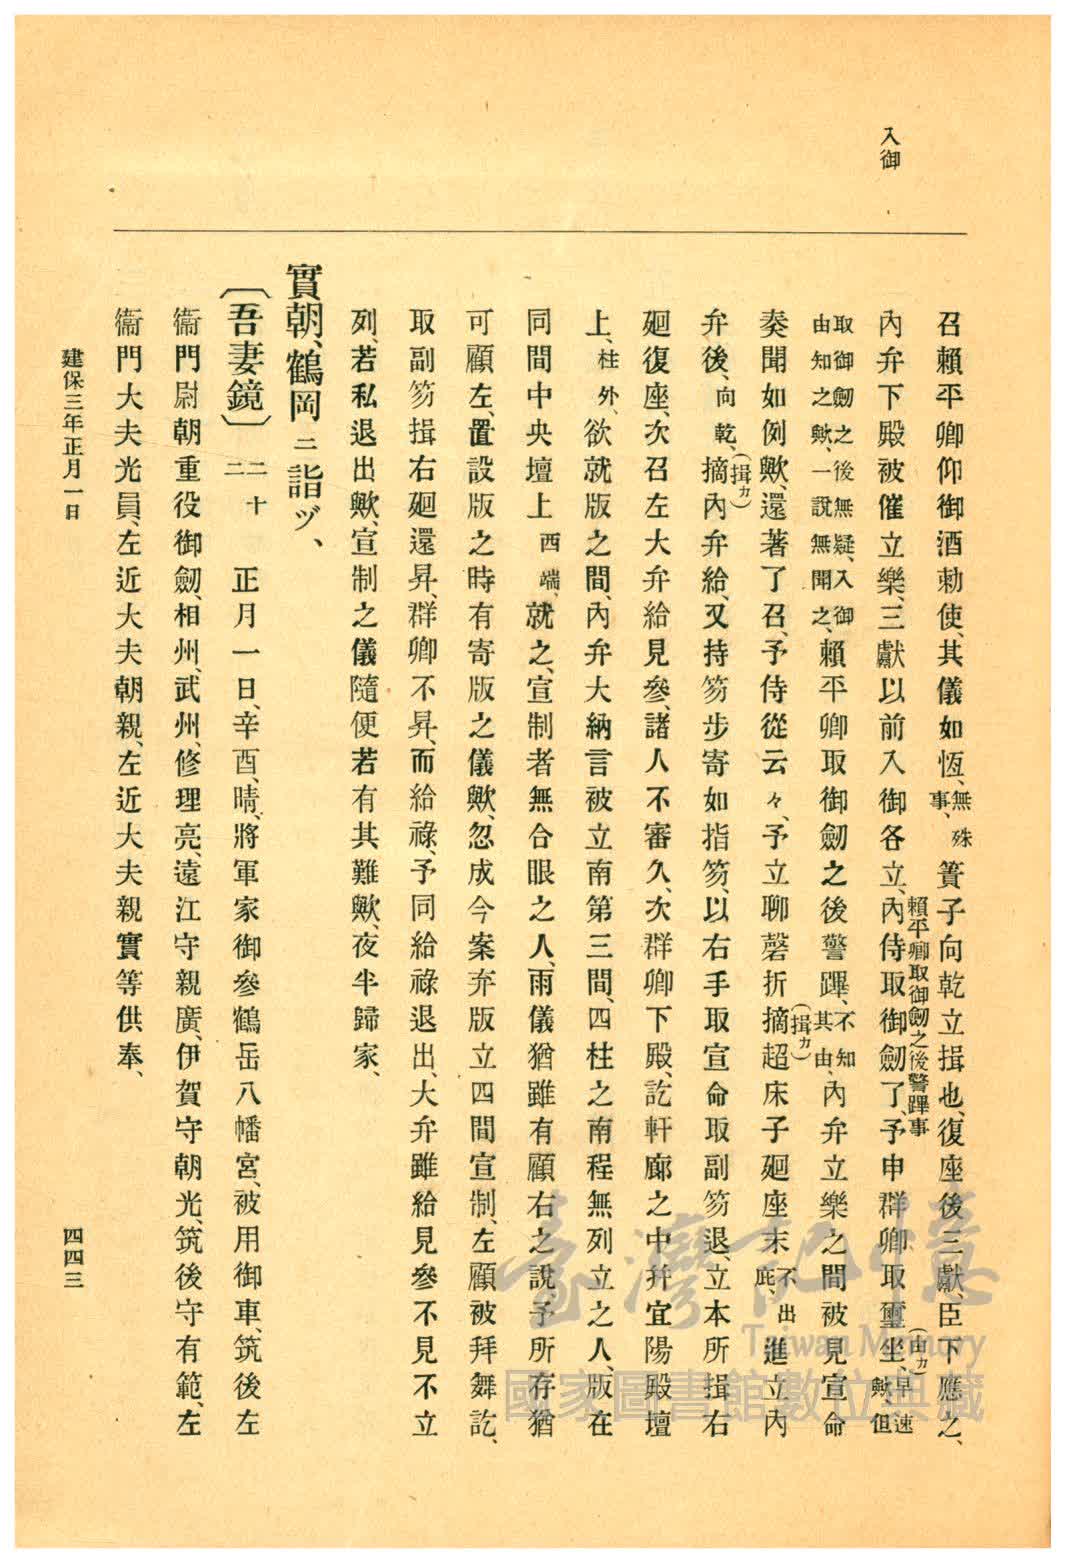 入御
召賴平卿仰御酒勅使、其儀如恆、無殊事、簀子向乾立揖也、復座後三獻、臣下應之、
內弁下殿被催立樂、三獻以前入御各立、內侍取御劒了、予申群卿取璽坐、早速歟、但
賴平卿取御劒之後警蹕事
(由カ)
取御劒之後無疑、入御由知之歟、一說無聞之、賴平卿取御劒之後警蹕、不知其由、內弁立樂之間被見宣命
奏聞如例歟、還著了召、予侍從云々、予立聊磬折摘超床子廻座末不出庇、進立內
(揖カ)
弁後、向乾、摘內弁給、又持笏步寄如指笏、以右手取宣命取副笏退、立本所揖右
(揖カ)
廻復座、次召左大弁給見參、諸人不審久、次群卿下殿、訖軒廊之中幷宜陽殿壇
上、柱外、欲就版之間、內弁大納言被立南第三間、四柱之南程無列立之人、版在
同間中央壇上西端、就之、宣制者無合眼之人、雨儀猶雖有顧右之說予所存猶
可顧左、置設版之時有寄版之儀歟、忽成今案弃版立四間宣制、左顧被拜舞訖、
取副笏揖右廻還昇、群卿不昇、而給祿、予同給祿退出、大弁雖給見參不見不立
列、若私退出歟、宣制之儀隨便若有其難歟、夜半歸家、
實朝、鶴岡ニ詣ヅ、
〔吾妻鏡〕二十二 正月一日、辛酉、晴、將軍家御參鶴岳八幡宮、被用御車、筑後左
衞門尉朝重役御劒、相州、武州、修理亮、遠江守親廣、伊賀守朝光、筑後守有範、左
衞門大夫光員、左近大夫朝親、左近大夫親實等供奉、
建保三年正月一日
四四三
臺灣記憶
Taiwan Memory
國家圖書館數位典藏